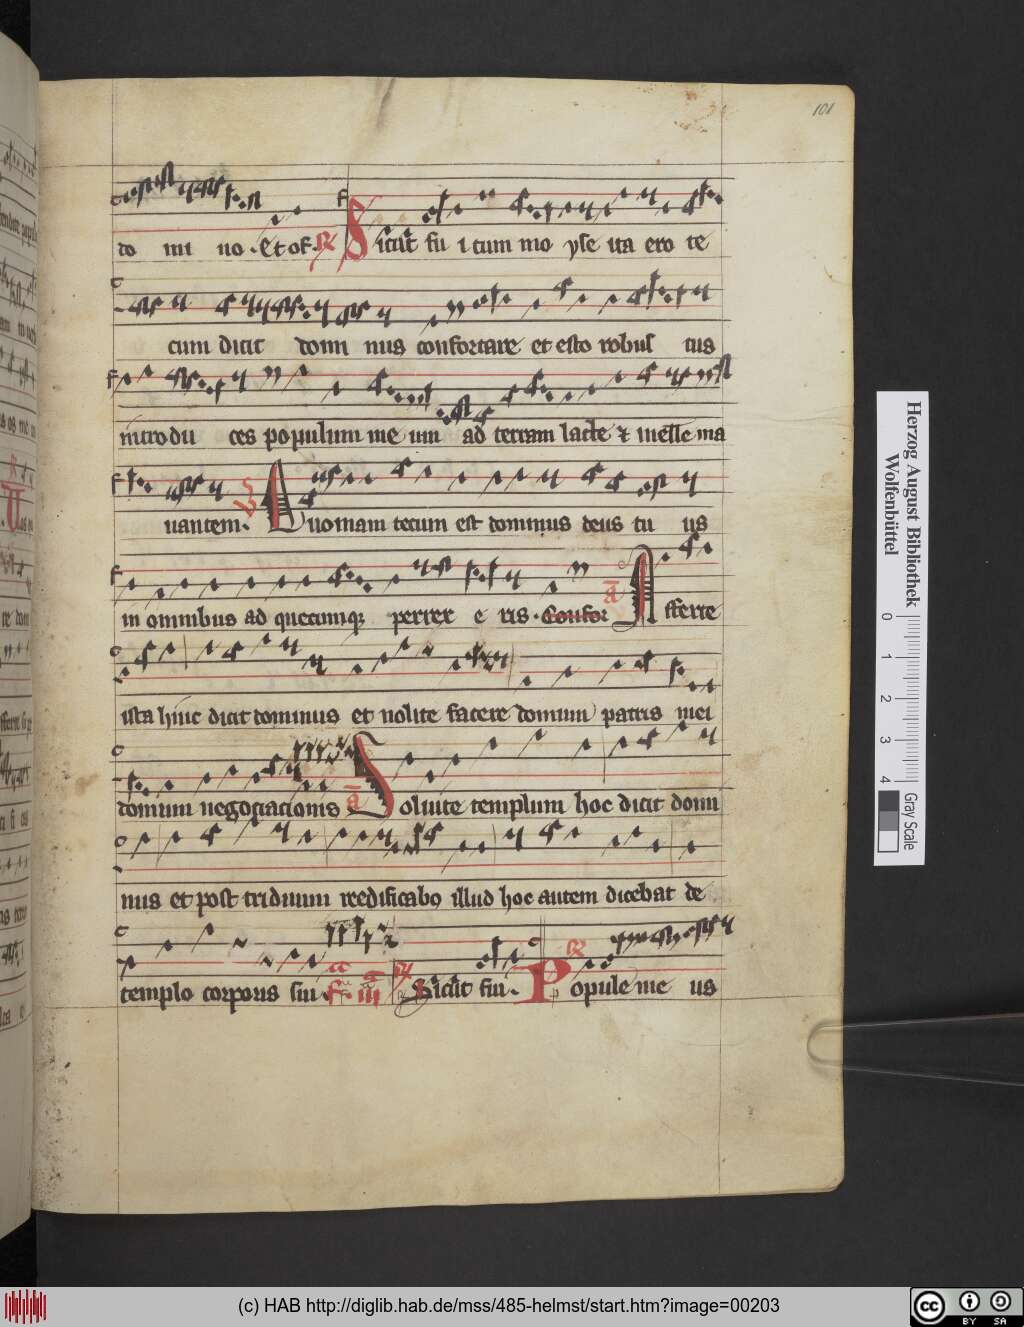 101
do mi no. Et of. R Sicut fu i cum mo yse ita ero te
cum dicit domi nus confortare et esto robus tus
introdu ces populum me um ad terram lacte ⁊ melle ma
nantem. V Quoniam tecum est dominus deus tu us
in omnibus ad quecumq; perrex e ris. Confor a Afferte
ista hinc dicit dominus et nolite facere domum patris mei
domum negociacionis a Soluite templum hoc dicit domi
nus et post triduum reedificabo illud hoc autem dicebat de
templo corporis sui. f. iij R Sicut fui. R Popule me us
Herzog August Bibliothek
Wolfenbüttel
0 1 2 3 4
Gray Scale
(c) HAB http://diglib.hab.de/mss/485-helmst/start.htm?image=00203
cc BY SA